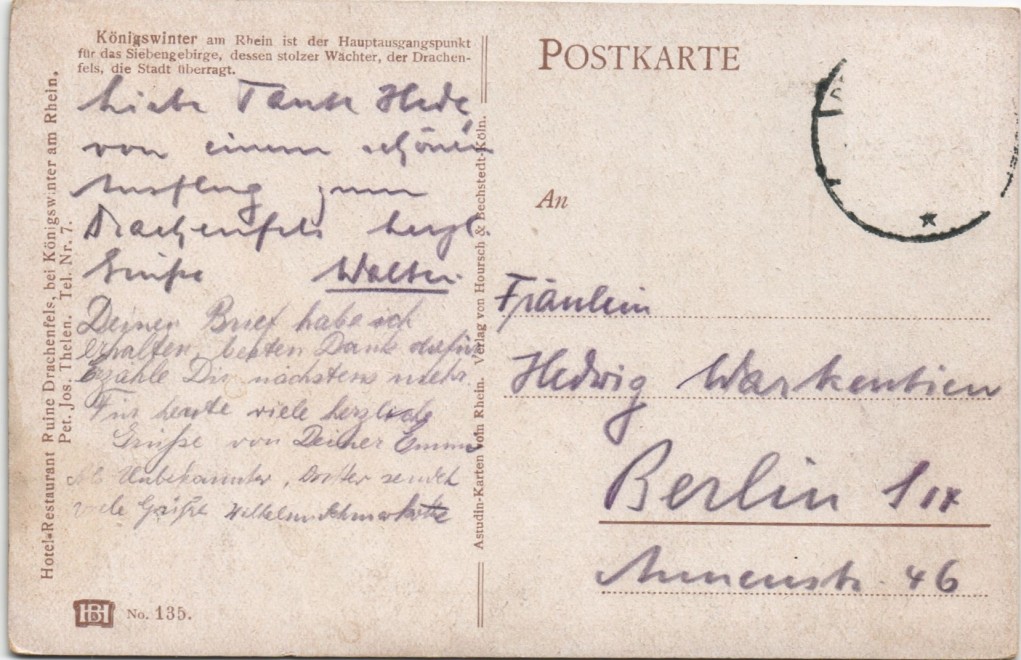 Königswinter am Rhein ist der Hauptausgangspunkt
für das Siebengebirge, dessen stolzer Wächter, der Drachen-
fels, die Stadt überragt.
POSTKARTE
Hotel-Restaurant Ruine Drachenfels, bei Königswinter am Rhein.
Pet. Jos. Thelen. Tel. Nr. 7.
Liebe Tante Hede
von einem schönen
Ausflug zum
Drachenfels herzl.
Grüße Walter.
Deinen Brief habe ich
erhalten, besten Dank dafür
Erzähle Dir nächstens mehr.
Für heute viele herzliche
Grüße von Deiner Emma
Als Unbekannter, Dritter sendet
viele Grüße Wilhelm
Astudin-Karten vom Rhein. Verlag von Hoursch & Bechstedt-Köln.
An
Fräulein
Hedwig Warkentien
Berlin S14
Annenstr. 46
HB
No. 135.